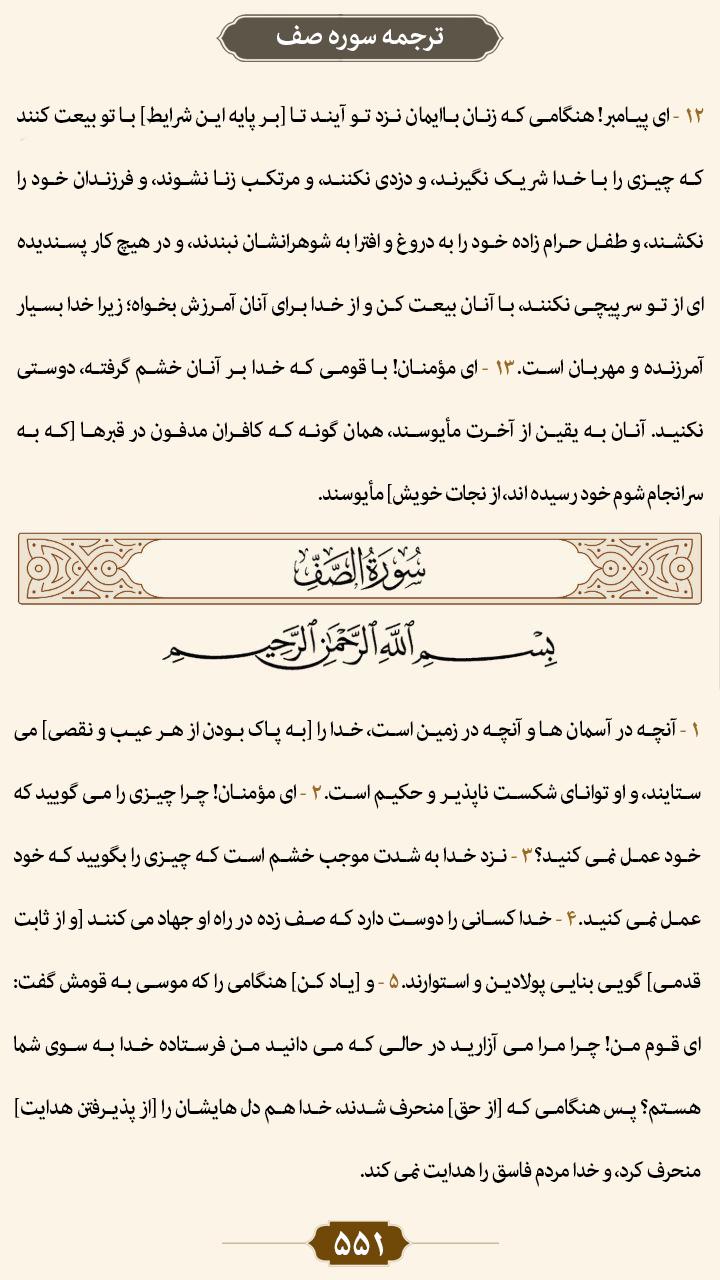 ترجمه سوره صف
۱۲ - ای پیامبر! هنگامی که زنان باایمان نزد تو آیند تا [بر پایه این شرایط] با تو بیعت کنند
که چیزی را با خدا شریک نگیرند، و دزدی نکنند، و مرتکب زنا نشوند، و فرزندان خود را
نکشند، و طفل حرام زاده خود را به دروغ و افترا به شوهرانشان نبندند، و در هیچ کار پسندیده
ای از تو سرپیچی نکنند، با آنان بیعت کن و از خدا برای آنان آمرزش بخواه؛ زیرا خدا بسیار
آمرزنده و مهربان است. ۱۳ - ای مؤمنان! با قومی که خدا بر آنان خشم گرفته، دوستی
نکنید. آنان به یقین از آخرت مأیوسند، همان گونه که کافران مدفون در قبرها [که به
سرانجام شوم خود رسیده اند، از نجات خویش] مأیوسند.
سُورَةُ الصَّفِّ
بِسْمِ ٱللَّهِ ٱلرَّحْمَٰنِ ٱلرَّحِيمِ
۱ - آنچه در آسمان ها و آنچه در زمین است، خدا را [به پاک بودن از هر عیب و نقصی] می
ستایند، و او توانای شکست ناپذیر و حکیم است. ۲ - ای مؤمنان! چرا چیزی را می گویید که
خود عمل نمی کنید؟ ۳ - نزد خدا به شدت موجب خشم است که چیزی را بگویید که خود
عمل نمی کنید. ۴ - خدا کسانی را دوست دارد که صف زده در راه او جهاد می کنند [و از ثابت
قدمی] گویی بنایی پولادین و استوارند. ۵ - و [یاد کن] هنگامی را که موسی به قومش گفت:
ای قوم من! چرا مرا می آزارید در حالی که می دانید من فرستاده خدا به سوی شما
هستم؟ پس هنگامی که [از حق] منحرف شدند، خدا هم دل هایشان را [از پذیرفتن هدایت]
منحرف کرد، و خدا مردم فاسق را هدایت نمی کند.
۵۵۱